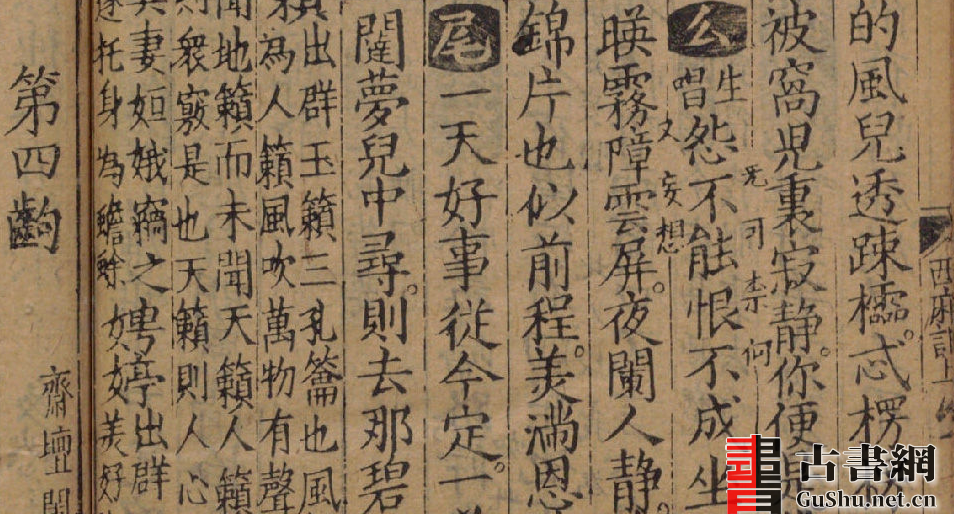 西廂記上
的風兒透踈櫺。忒楞
被窩兒裏寂静。你便是
旡可柰何
么生唱怨不能恨不成坐
又妄想
暎霧障雲屏。夜闌人静。
錦片也似前程。美滿恩
尾一天好事從今定。一
闥夢兒中尋。則去那碧
出群玉籟三孔籥也風
為人籟風吹萬物有聲
聞地籟而未聞天籟人籟
則衆竅是也天籟則人心
妻姮娥竊之娉婷出群
托身為蟾蜍美好
齋壇鬧
第四齣
古書網
GuShu.net.cn